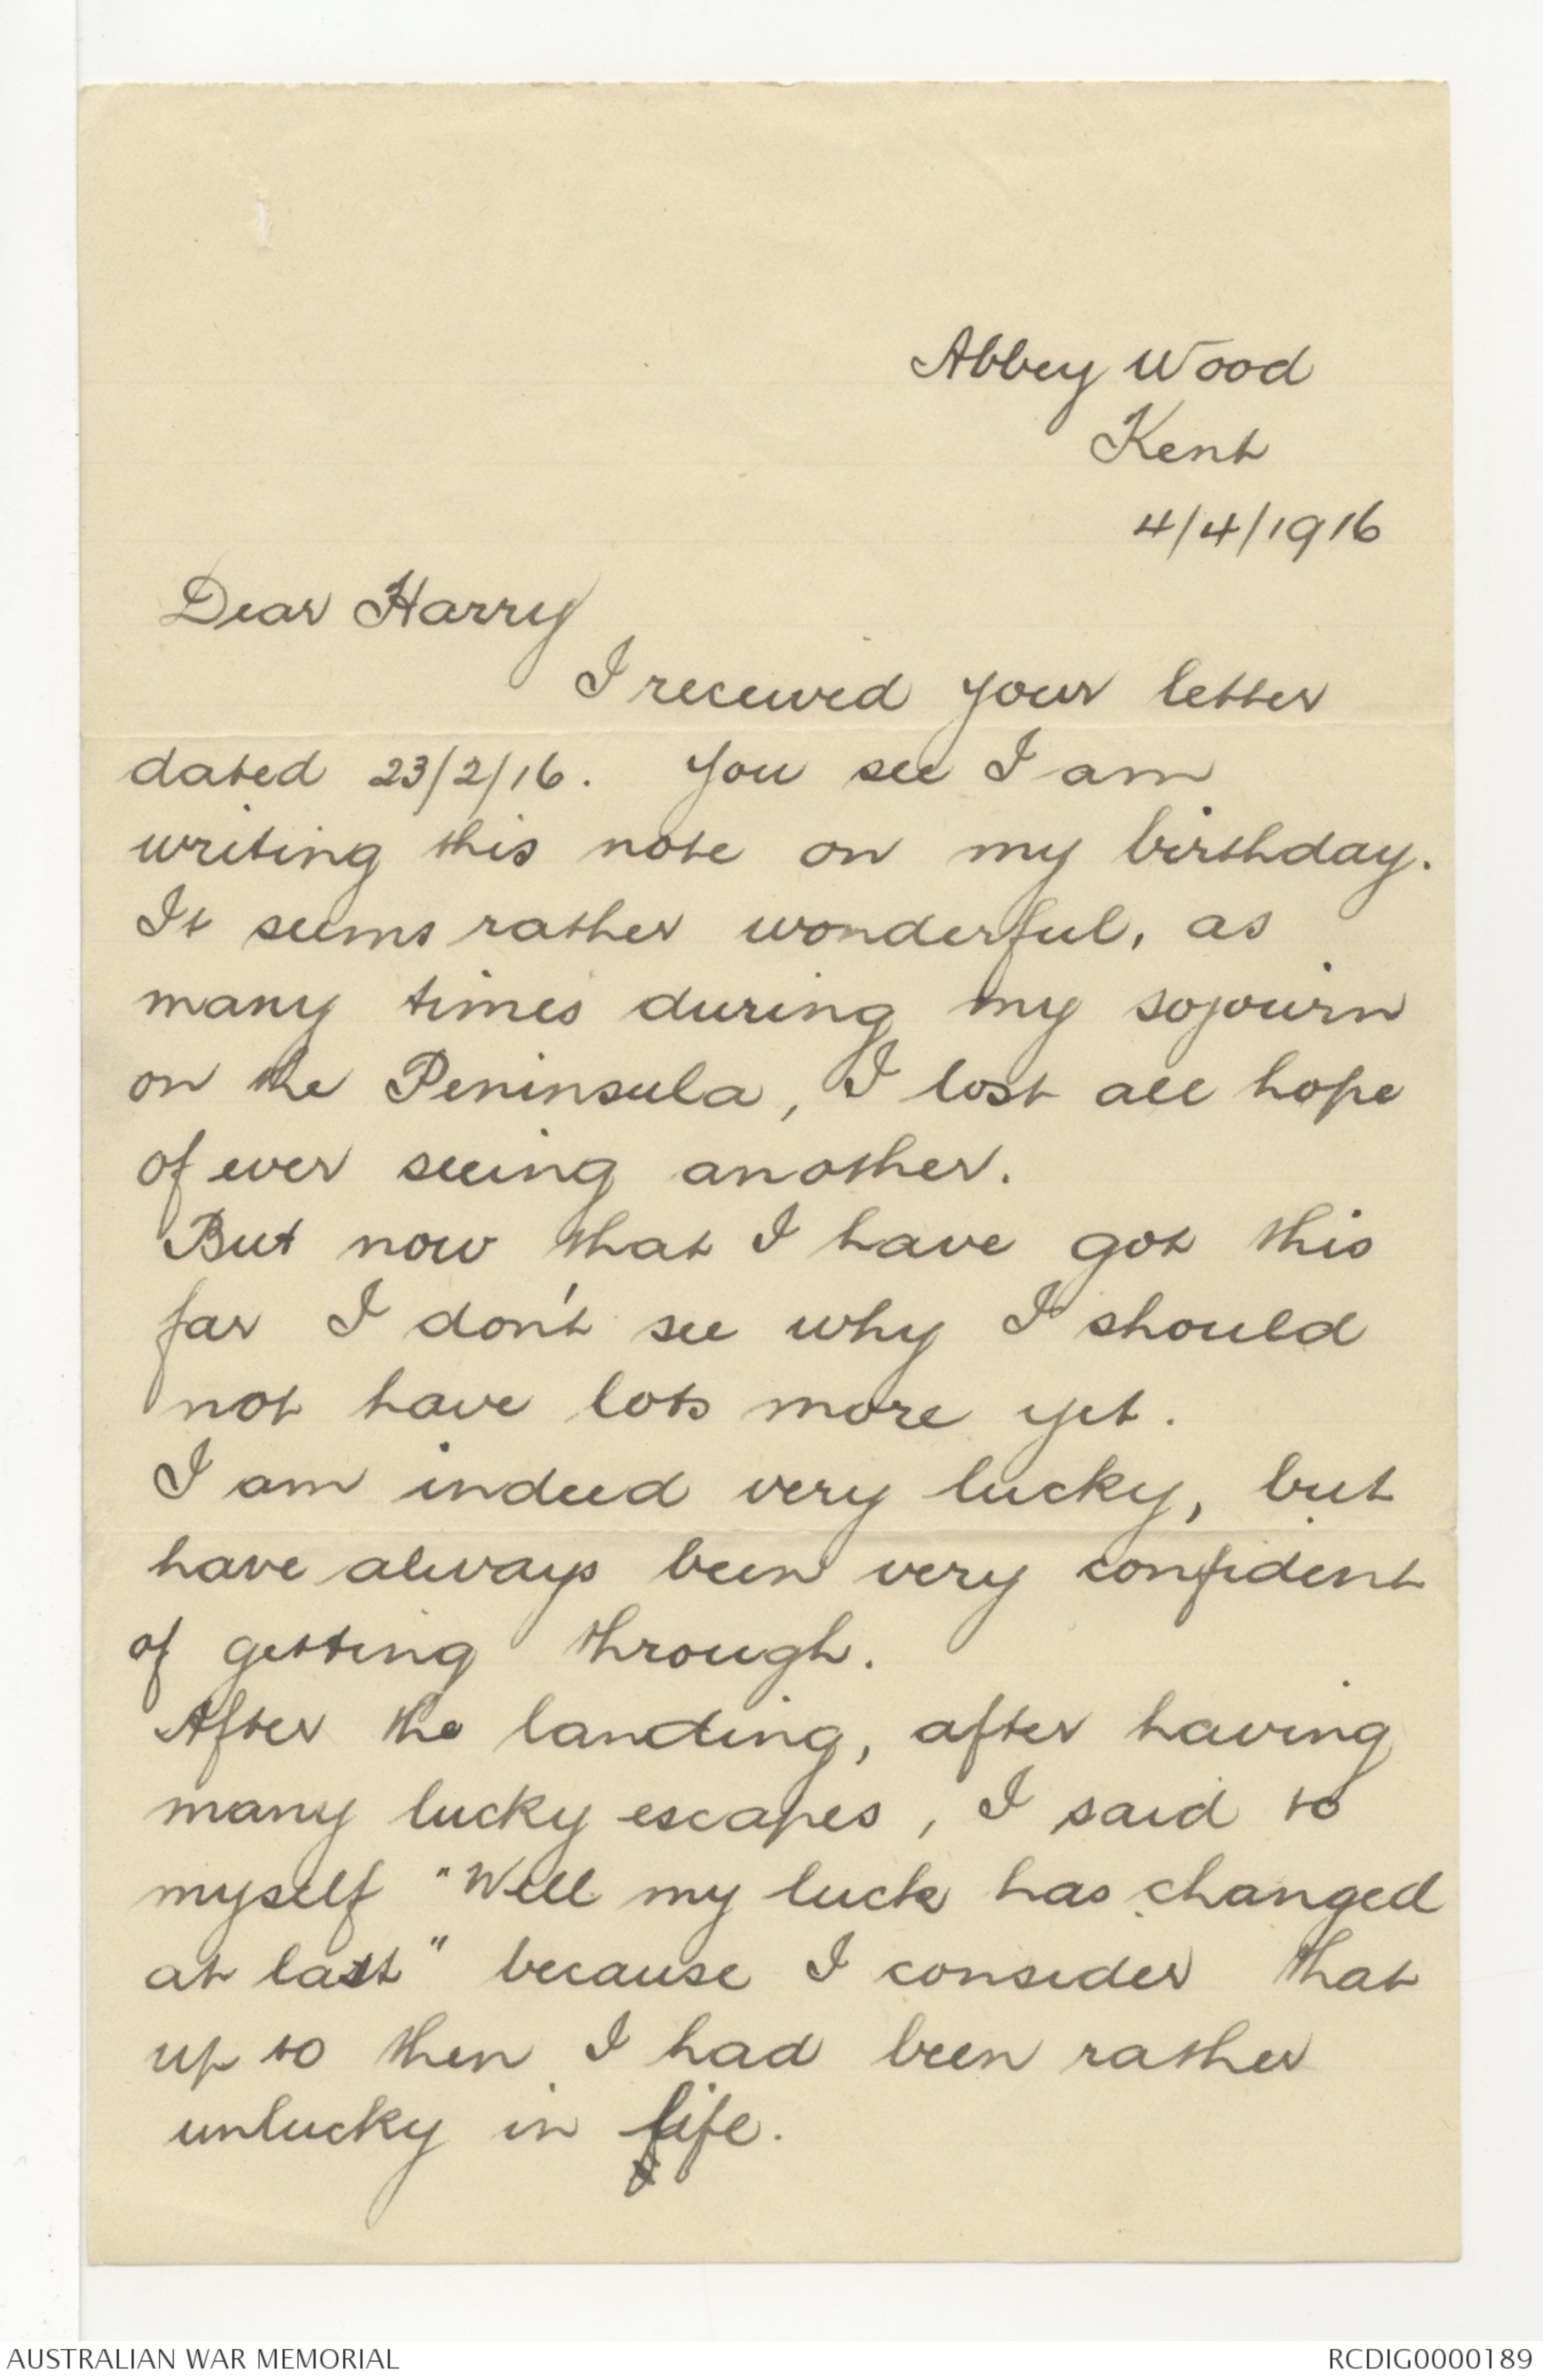 Abbey Wood
Kent
4/4/1916
Dear Harry
I received your letter
dated 23/2/16. You see I am
writing this note on my birthday.
It seems rather wonderful, as
many times during my sojourn
on the Peninsula, I lost all hope
of ever seeing another.
But now that I have got this
far I don't see why I should
not have lots more yet.
I am indeed very lucky, but
have always been very confident
of getting through.
After the landing, after having
many lucky escapes, I said to
myself "Well my luck has changed
at last" because I consider that
up to then I had been rather
unlucky in life.
AUSTRALIAN WAR MEMORIAL
RCDIG0000189